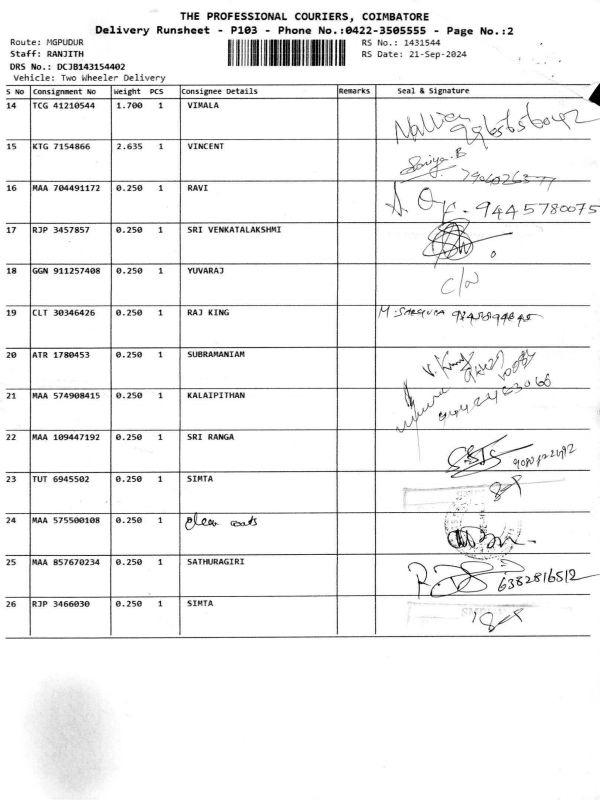 THE PROFESSIONAL COURIERS, COIMBATORE
Delivery Runsheet - P103 - Phone No.:0422-3505555 - Page No.:2
Route: MGPUDUR RS No.: 1431544
Staff: RANJITH RS Date: 21-Sep-2024
DRS No.: DCJB143154402
Vehicle: Two Wheeler Delivery
S No Consignment No Weight PCS Consignee Details Remarks Seal & Signature
14 TCG 41210544 1.700 1 VIMALA
15 KTG 7154866 2.635 1 VINCENT
16 MAA 704491172 0.250 1 RAVI 9445780075
17 RJP 3457857 0.250 1 SRI VENKATALAKSHMI
18 GGN 911257408 0.250 1 YUVARAJ
19 CLT 30346426 0.250 1 RAJ KING
20 ATR 1780453 0.250 1 SUBRAMANIAM
21 MAA 574908415 0.250 1 KALAIPITHAN
22 MAA 109447192 0.250 1 SRI RANGA
23 TUT 6945502 0.250 1 SIMTA
24 MAA 575500108 0.250 1
25 MAA 857670234 0.250 1 SATHURAGIRI 6382816512
26 RJP 3466030 0.250 1 SIMTA